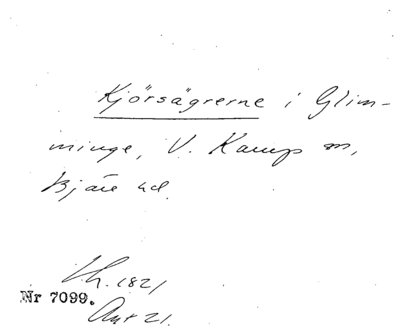 Kjörsägrerne i Glim-
minge, V. Karup sn,
Bjäre hd.
Lh. 1821
Nr 7099.
Ant 21.